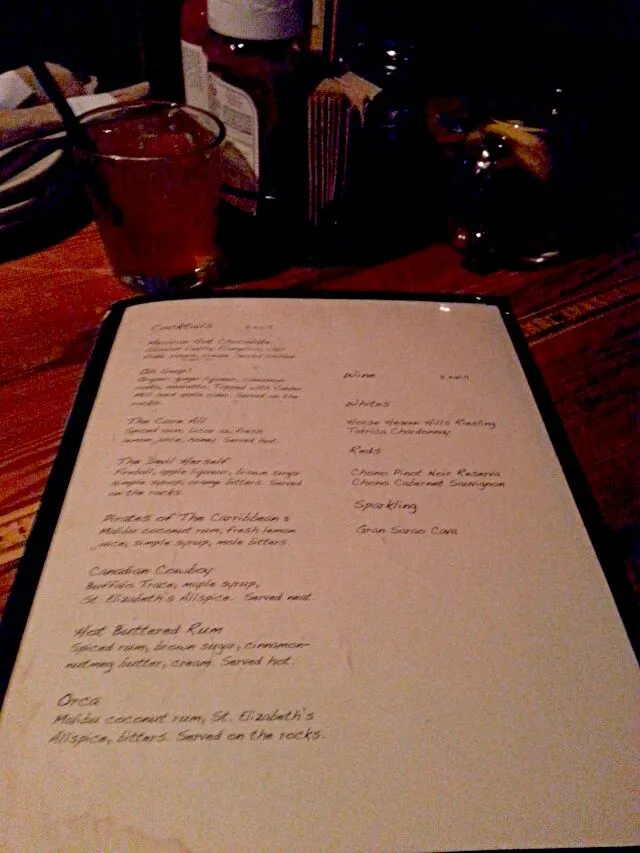 Cocktails
Mexican Hot Chocolate
Served chilled.
Oh Snap!
Organic ginger liqueur, cinnamon
amaretto. Topped with Vander
Mill hard apple cider. Served on the
rocks.
The Cure All
Spiced rum, fresh
lemon juice, honey. Served hot.
The Devil Herself
Fireball, apple liqueur, brown sugar
simple syrup, orange bitters. Served
on the rocks.
Pirates of The Carribbean
Malibu coconut rum, fresh lemon
juice, simple syrup, mole bitters.
Canadian Cowboy
Buffalo Trace, maple syrup,
St. Elizabeth's Allspice. Served neat.
Hot Buttered Rum
Spiced rum, brown sugar, cinnamon-
nutmeg butter, cream. Served hot.
Orca
Malibu coconut rum, St. Elizabeth's
Allspice, bitters. Served on the rocks.
Wine
Whites
Horse Heaven Hills Riesling
Chardonnay
Reds
Chono Pinot Noir Reserva
Chono Cabernet Sauvignon
Sparkling
Gran Sarao Cava